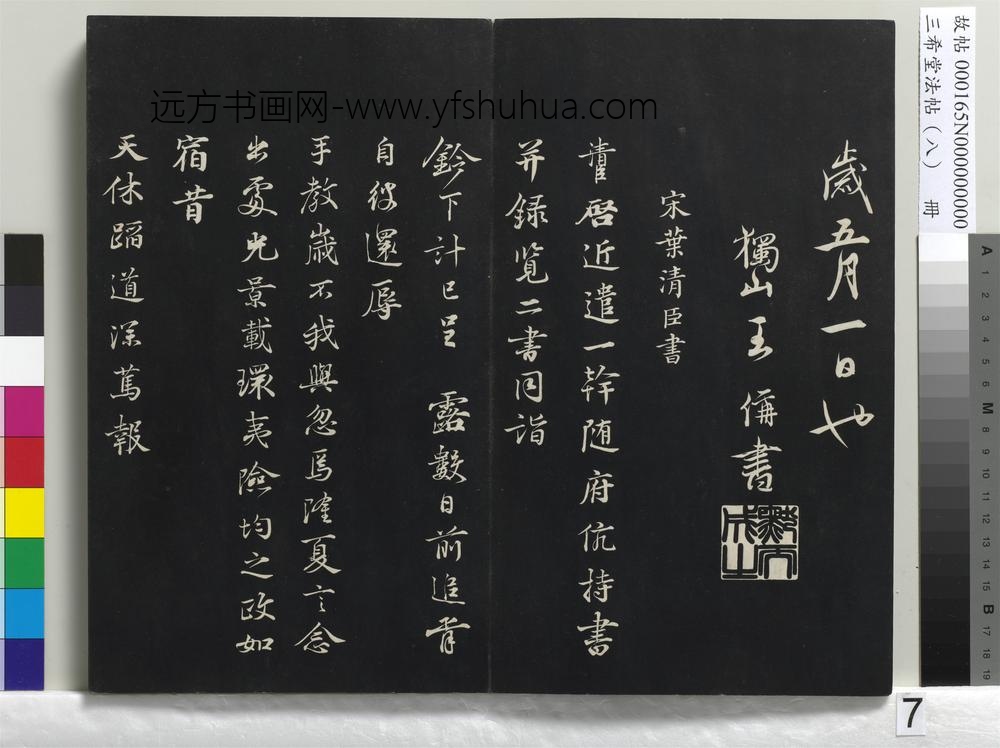 歲五月一日也
獨山王 俌書
宋葉清臣書
清臣啓近遣一幹随府伉持書
并録覧二書同詣
鈴下計已呈 露數日前追胥
自彼還辱
手教歲不我與忽焉隆夏言念
出處光景載環夷險均之政如
宿昔
天休蹈道深蔦報
远方书画网-www.yfshuhua.com
故帖 000165N000000000
三希堂法帖（八） 冊
7
A 1 2 3 4 5 6 M 8 9 10 11 12 13 14 15 B 17 18 19